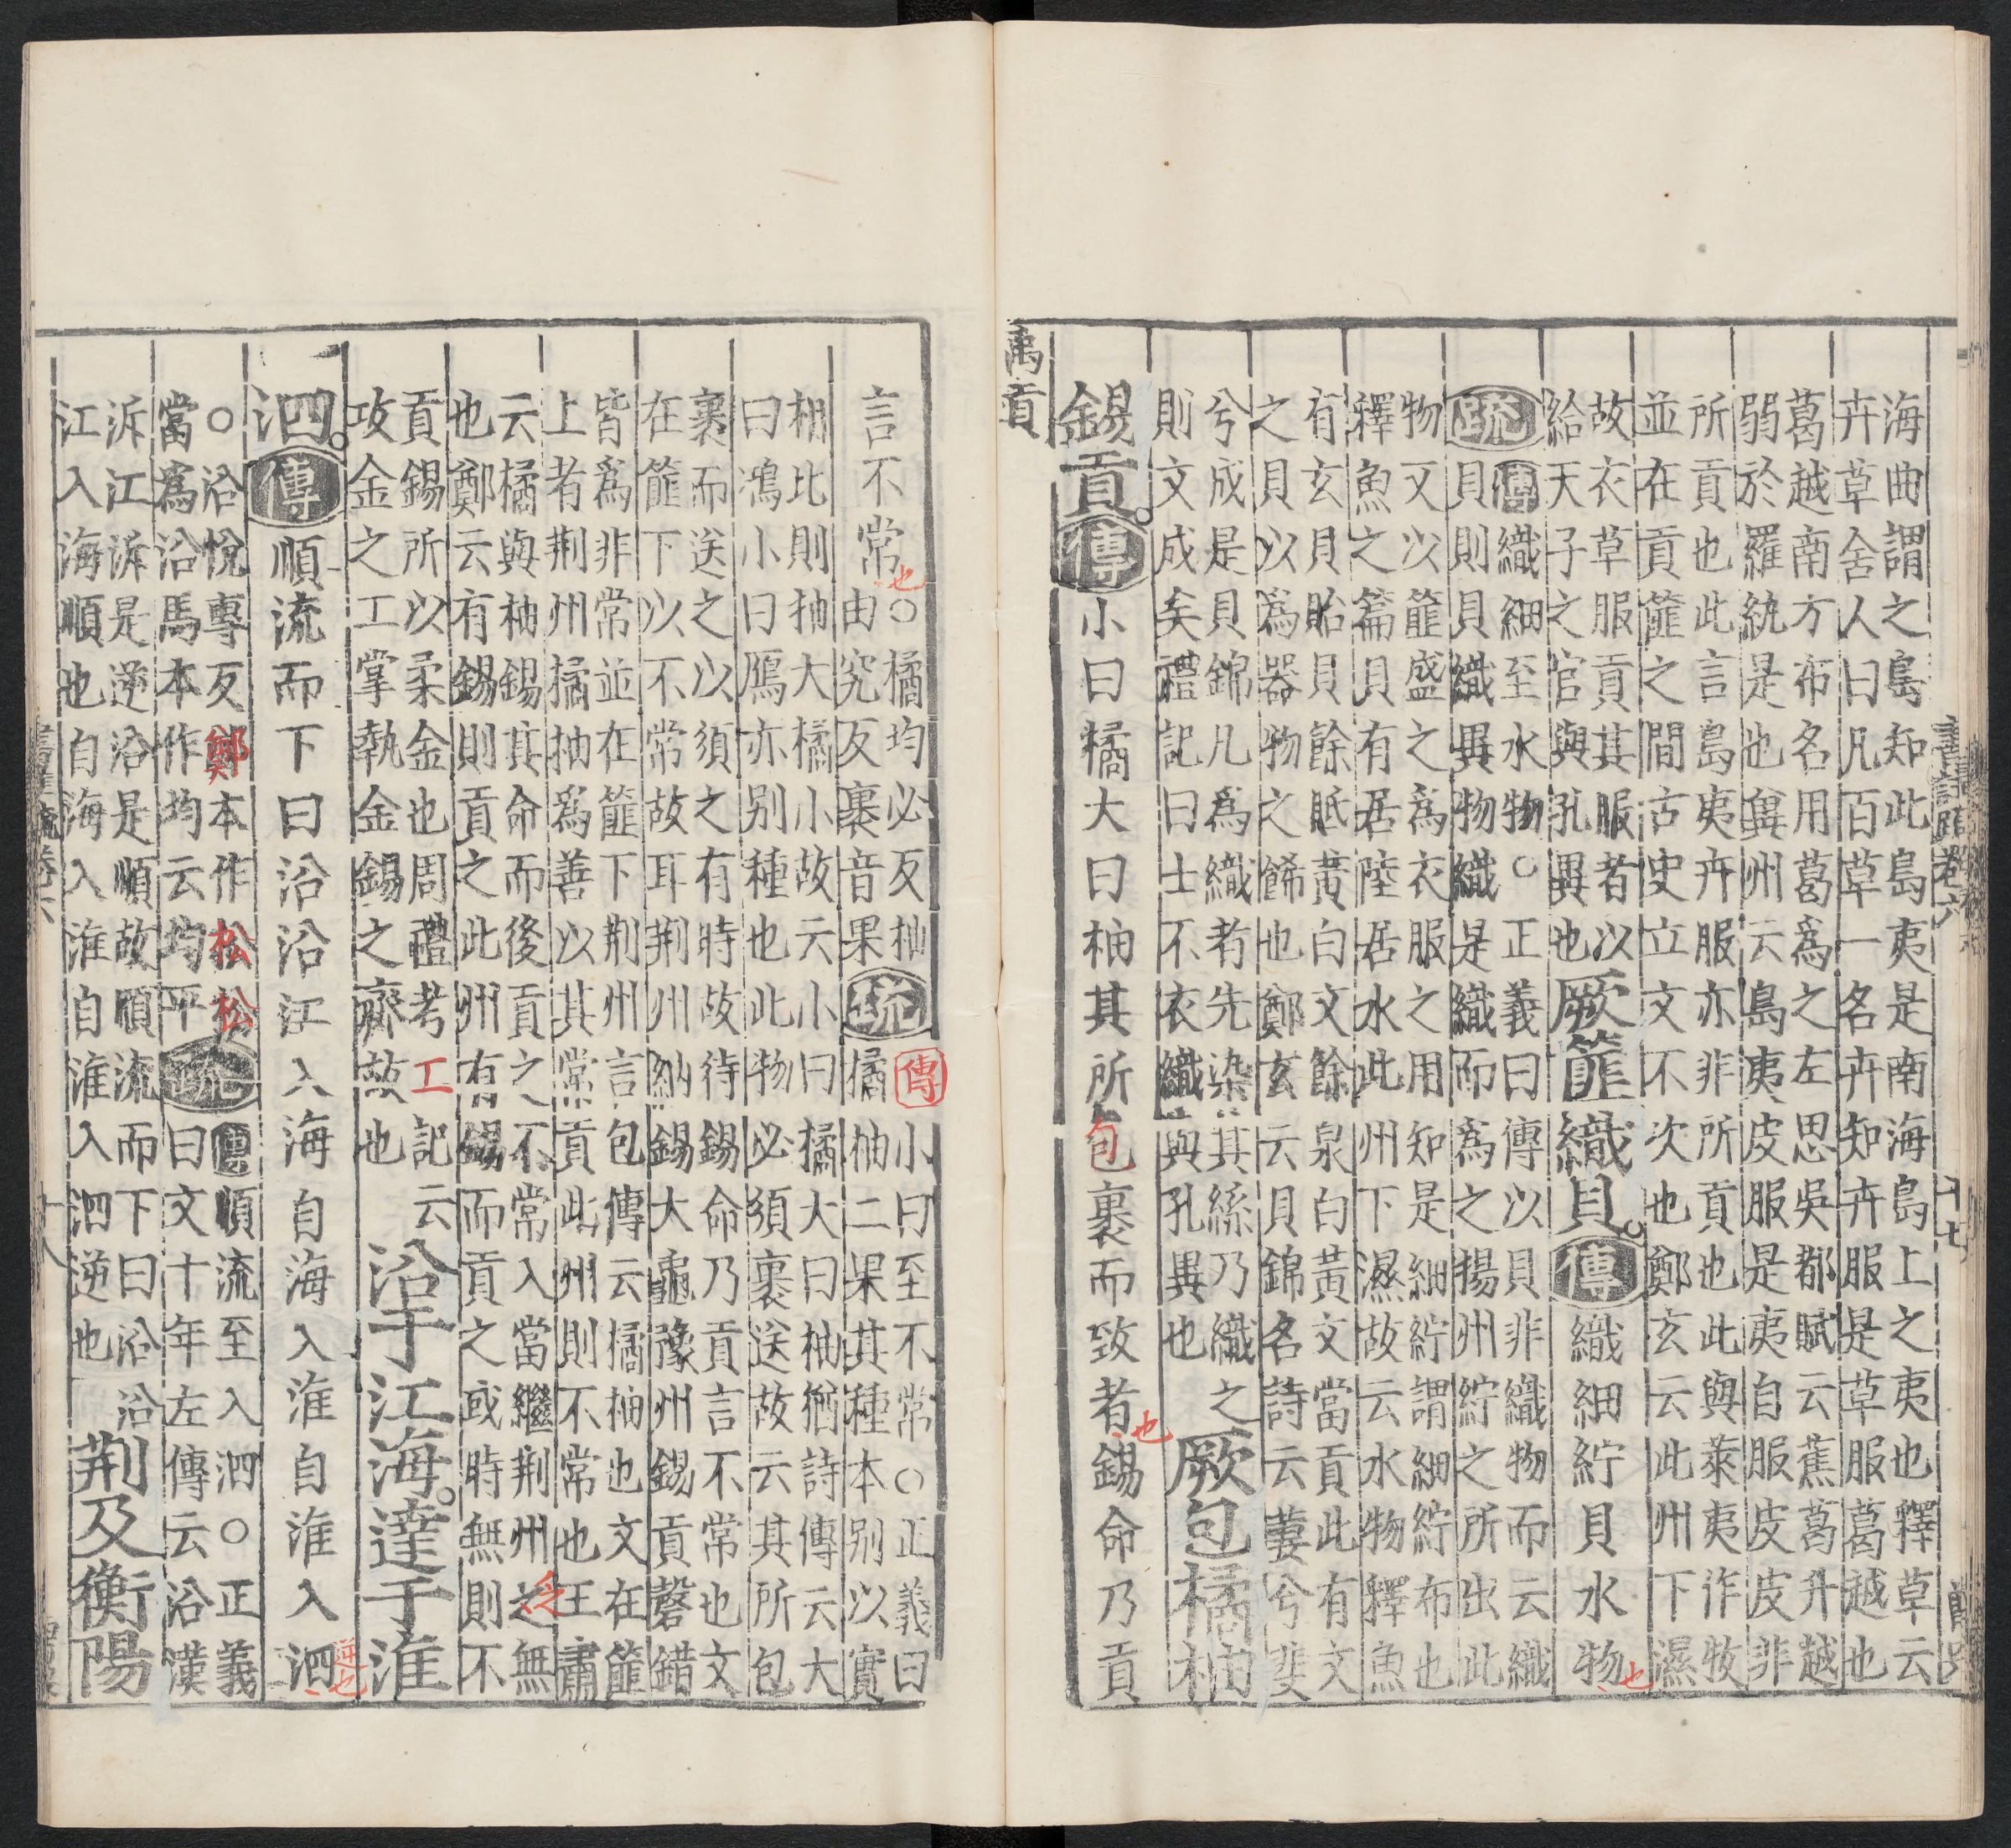 海曲謂之島知此島夷是南海島上之夷也釋草云
卉草舍人曰凡百草一名卉知卉服是草服葛越也
葛越南方布名用葛爲之左思吳都賦云蕉葛升越
弱於羅紈是也兾州云島夷皮服是夷自服皮皮非
所貢也此言島夷卉服亦非所貢也此與萊夷作牧
並在貢篚之間古史立文不次也鄭玄云此州下濕
故衣草服貢其服者以
給天子之官與孔異也
厥篚織貝。傳織細紵貝水物也
疏
傳織細至水物○正義曰傳以貝非織物而云織
貝則貝織異物織是織而爲之揚州紵之所出此
物又以篚盛之爲衣服之用知是細紵謂細紵布也
釋魚之篇貝有居陸居水此州下濕故云水物釋魚
有玄貝貽貝餘貾黃白文餘泉白黃文當貢此有文
之貝以爲器物之飾也鄭玄云貝錦名詩云萋兮斐
兮成是貝錦凡爲織者先染其絲乃織之
則文成矣禮記曰士不衣織與孔異也
厥包橘柚
錫貢。傳小曰橘大曰柚其所包裹而致者也錫命乃貢
禹貢
言不常也
○橘均必反柚
由究反裹音果
疏
傳小曰至不常○正義曰
橘柚二果其種本别以實
相比則柚大橘小故云小曰橘大曰柚猶詩傳云大
曰鴻小曰鴈亦别種也此物必須裹送故云其所包
裹而送之以須之有時故待錫命乃貢言不常也文
在篚下以不常故耳荆州納錫大龜豫州錫貢磬錯
皆爲非常並在篚下荆州言包傳云橘柚也文在篚
上者荆州橘柚爲善以其常貢此州則不常也王肅
云橘與柚錫其命而後貢之不常入當繼荆州乏無
也鄭云有錫則貢之此州有錫而貢之或時無則不
貢錫所以柔金也周禮考工記云
攻金之工掌執金錫之齊故也
沿于江海。達于淮
泗。傳順流而下曰沿沿江入海自海入淮自淮入泗逆也
○沿悅專反鄭本作松松
當爲沿馬本作均云均平
疏
傳順流至入泗○正義
曰文十年左傳云沿漢
泝江泝是逆沿是順故順流而下曰沿沿
江入海順也自海入淮自淮入泗逆也
荆及衡陽